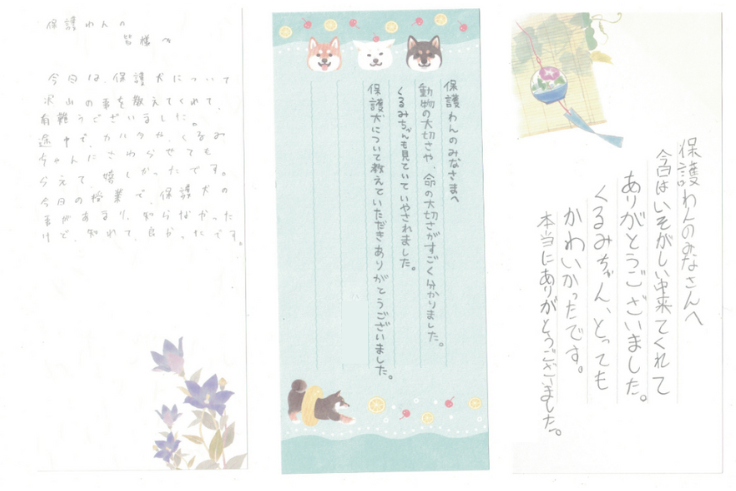 保護わんの
皆様へ
今日は、保護犬について
沢山の事を教えてくれて、
有難うございました。
途中で、カハタや、くるみ
ちゃんにさわらせても
らえて、嬉しかったです。
今日の授業で、保護犬の
事があまり、知らなかった
けど、知れて、良かったです。
保護わんのみなさまへ
動物の大切さや、命の大切さがすごく分かりました。
くるみちゃんも見ていていやされました。
保護犬について教えていただきありがとうございました。
保護わんのみなさんへ
今日はいそがしい中来てくれて
ありがとうございました。
くるみちゃん、とっても
かわいかったです。
本当にありがとうございました。